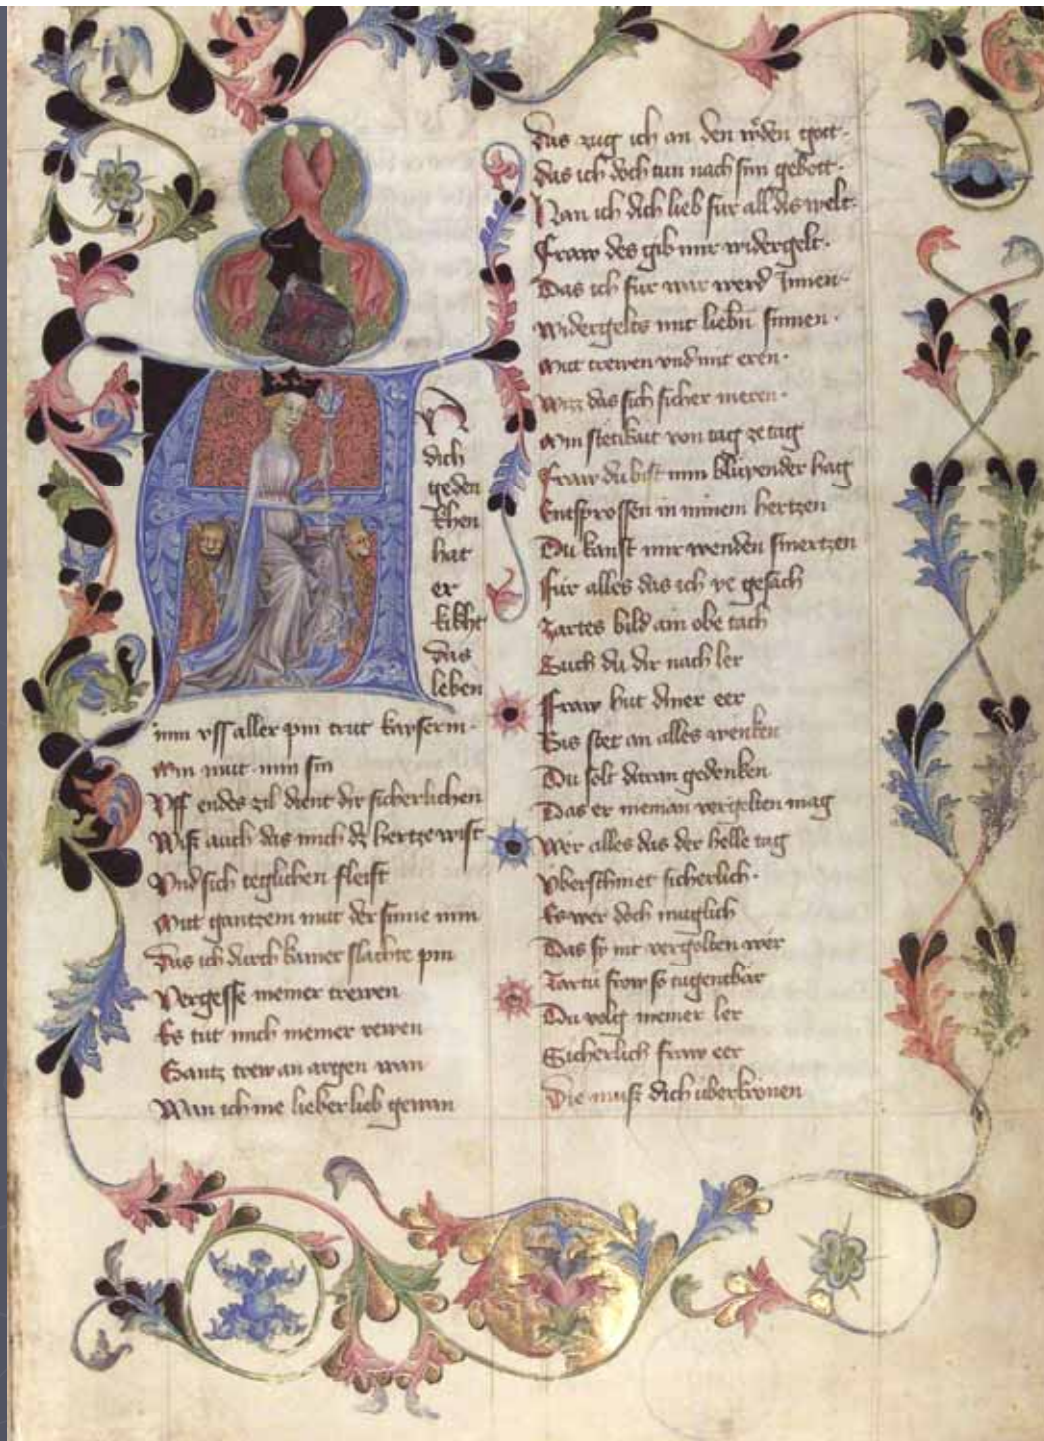 An
dich
geden
khen
hat
er
kikht
das
leben
min vss aller pin trut kayserin·
Min mut· min sin
Vff endes zil dient dir sicherlichen
Wiß auch das mich dz hertze wist
Vnd sich teglichen fleist
Mitt gantzem mut der sinne min
Das ich durch kainer slachte pin
Vergesse meiner trewen
Es tut mich niemer rewen
Gantz trew an argen wan
Wan ich nie lieber lieb gewan
Das zug ich an den werden gott·
Das ich doch tun nach sim gebott·
Han ich dich lieb für all dis welt·
Fraw des gib mir widergelt·
Das ich für war werd Innen·
Widergelts mit liebn sinnen·
Mitt trewen vnd mit eren·
Wizz das sich sicher meren·
Min stetikait von tag ze tag
Fraw du bist min blüyender hag
Entsprossen in minem hertzen
Du kanst mir wenden smertzen
Für alles das ich ye gesach
Zartes bild ain obe tach
Such du dir nach ler
Fraw hut diner eer
Bis stet an alles wenken
Du solt daran gedenken
Das er nieman vergelten mag
Wer alles das der helle tag
Vberschinet sicherlich·
Es wer doch muglich
Das sy nit vergolten wer
Zartü frow so tugentbär
Du volg meiner ler
Sicherlich fraw eer
Die muß dich überkrönen